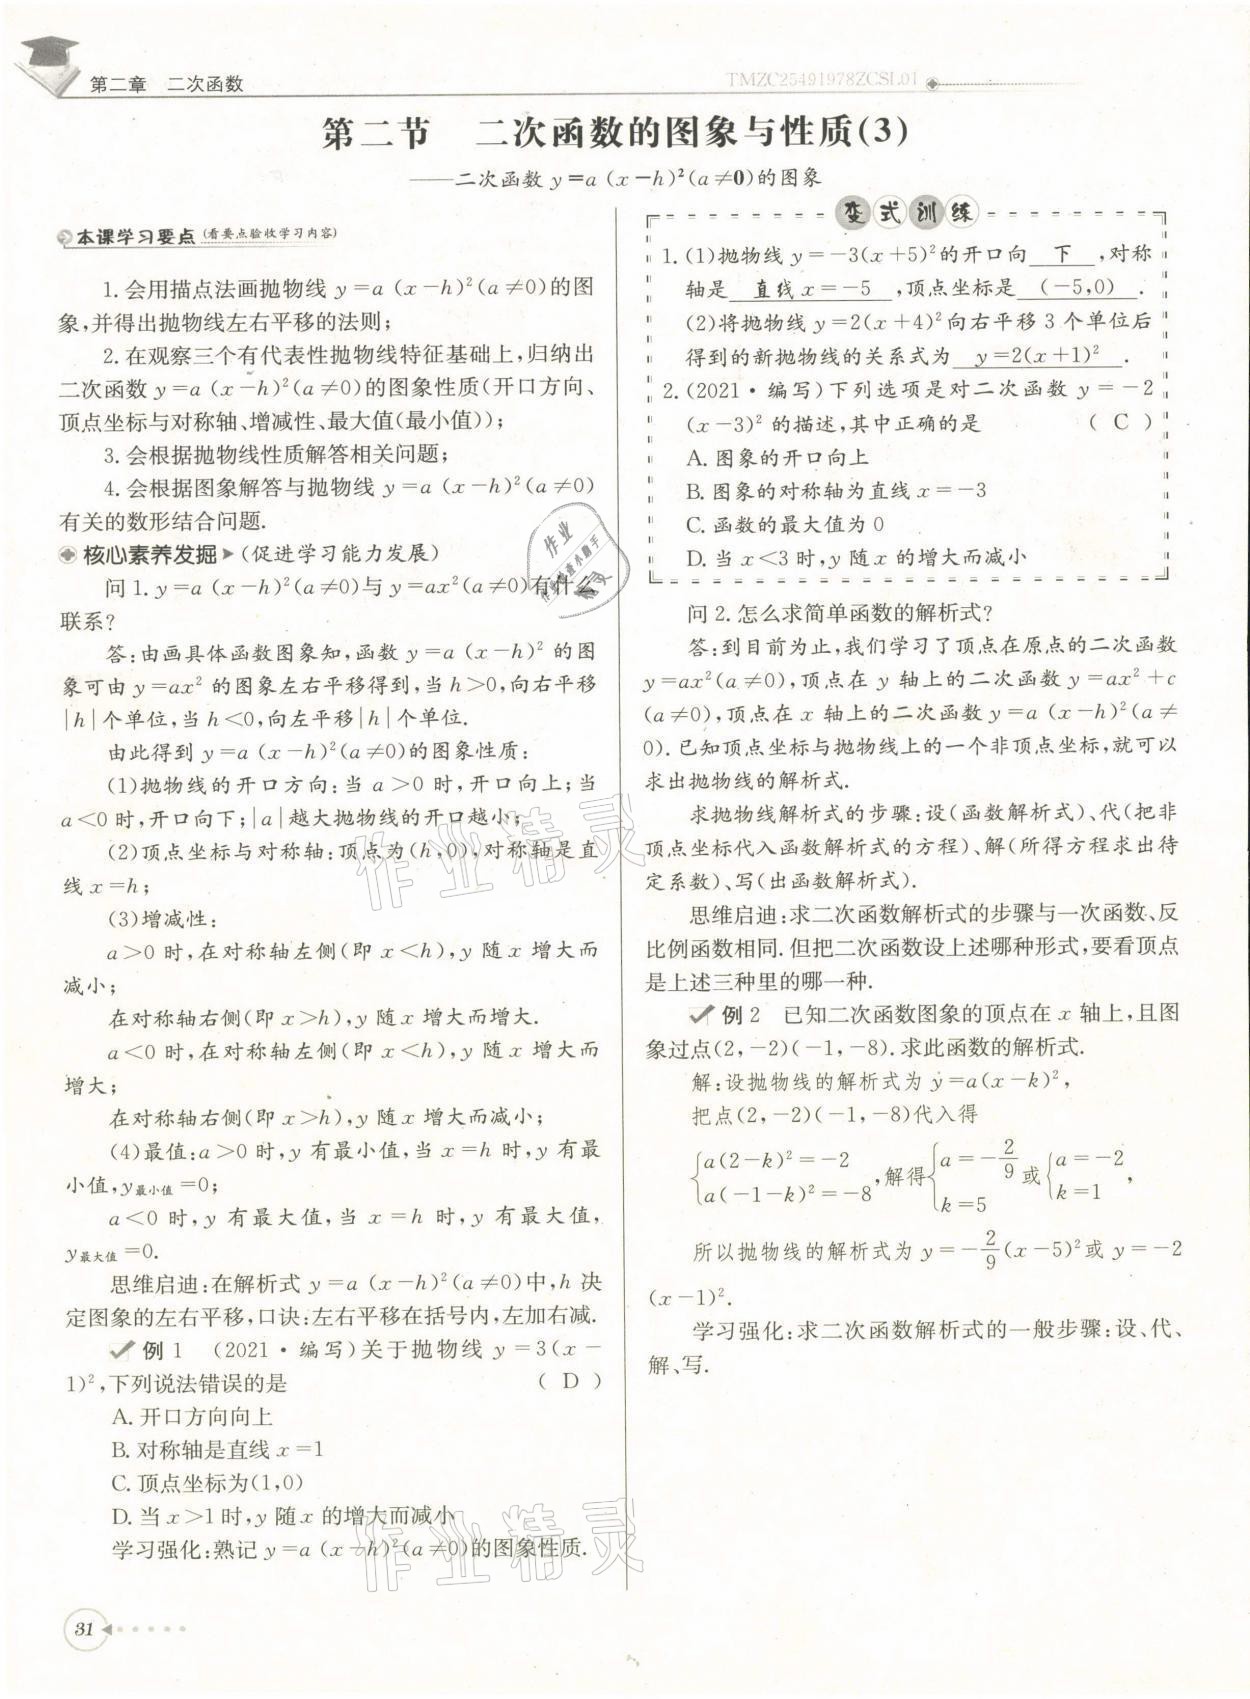 第二章　二次函数
TMZC25491978ZCSL01
第二节　二次函数的图象与性质(3)
——二次函数 y=a (x-h)²(a≠0)的图象
本课学习要点(看要点验收学习内容)
1.会用描点法画抛物线 y=a (x-h)²(a≠0)的图
象,并得出抛物线左右平移的法则;
2.在观察三个有代表性抛物线特征基础上,归纳出
二次函数 y=a (x-h)²(a≠0)的图象性质(开口方向、
顶点坐标与对称轴、增减性、最大值(最小值));
3.会根据抛物线性质解答相关问题;
4.会根据图象解答与抛物线 y=a (x-h)²(a≠0)
有关的数形结合问题.
核心素养发掘(促进学习能力发展)
问 1.y=a (x-h)²(a≠0)与 y=ax²(a≠0)有什么
联系?
答:由画具体函数图象知,函数 y=a (x-h)² 的图
象可由 y=ax² 的图象左右平移得到,当 h>0,向右平移
|h|个单位,当 h<0,向左平移|h|个单位.
由此得到 y=a (x-h)²(a≠0)的图象性质:
(1)抛物线的开口方向:当 a>0 时,开口向上;当
a<0 时,开口向下;|a|越大抛物线的开口越小;
(2)顶点坐标与对称轴:顶点为(h,0),对称轴是直
线 x=h;
(3)增减性:
a>0 时,在对称轴左侧(即 x<h),y 随 x 增大而
减小;
在对称轴右侧(即 x>h),y 随 x 增大而增大.
a<0 时,在对称轴左侧(即 x<h),y 随 x 增大而
增大;
在对称轴右侧(即 x>h),y 随 x 增大而减小;
(4)最值:a>0 时,y 有最小值,当 x=h 时,y 有最
小值,y最小值=0;
a<0 时,y 有最大值,当 x=h 时,y 有最大值,
y最大值=0.
思维启迪:在解析式 y=a (x-h)²(a≠0)中,h 决
定图象的左右平移,口诀:左右平移在括号内,左加右减.
例 1　(2021·编写)关于抛物线 y=3(x-
1)²,下列说法错误的是　( D )
A.开口方向向上
B.对称轴是直线 x=1
C.顶点坐标为(1,0)
D.当 x>1 时,y 随 x 的增大而减小
学习强化:熟记 y=a (x-h)²(a≠0)的图象性质.
31
变式训练
1.(1)抛物线 y=-3(x+5)²的开口向 下 ,对称
轴是 直线 x=-5 ,顶点坐标是 (-5,0) .
(2)将抛物线 y=2(x+4)²向右平移 3 个单位后
得到的新抛物线的关系式为 y=2(x+1)² .
2.(2021·编写)下列选项是对二次函数 y=-2
(x-3)² 的描述,其中正确的是　( C )
A.图象的开口向上
B.图象的对称轴为直线 x=-3
C.函数的最大值为 0
D.当 x<3 时,y 随 x 的增大而减小
问 2.怎么求简单函数的解析式?
答:到目前为止,我们学习了顶点在原点的二次函数
y=ax²(a≠0),顶点在 y 轴上的二次函数 y=ax²+c
(a≠0),顶点在 x 轴上的二次函数 y=a (x-h)²(a≠
0).已知顶点坐标与抛物线上的一个非顶点坐标,就可以
求出抛物线的解析式.
求抛物线解析式的步骤:设(函数解析式)、代(把非
顶点坐标代入函数解析式的方程)、解(所得方程求出待
定系数)、写(出函数解析式).
思维启迪:求二次函数解析式的步骤与一次函数、反
比例函数相同.但把二次函数设上述哪种形式,要看顶点
是上述三种里的哪一种.
例 2　已知二次函数图象的顶点在 x 轴上,且图
象过点(2,-2)(-1,-8).求此函数的解析式.
解:设抛物线的解析式为 y=a(x-k)²,
把点(2,-2)(-1,-8)代入得
{a(2-k)²=-2 a(-1-k)²=-8,解得{a=-2/9 k=5 或{a=-2 k=1,
所以抛物线的解析式为 y=-2/9(x-5)²或 y=-2
(x-1)².
学习强化:求二次函数解析式的一般步骤:设、代、
解、写.
作业精灵
作业精灵